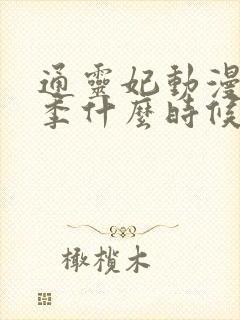 通靈妃動漫
季什麼時候
橄欖木